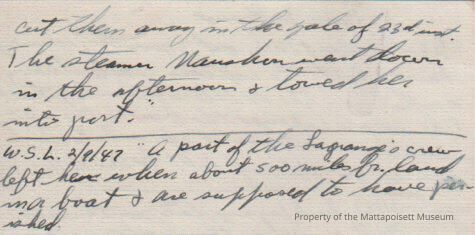 cut them away in the gale of 23d inst.
The steamer Naushon went down
in the afternoon & towed her
into port."
W.S.L. 2/9/47 "A part of the Lagrange's crew
left her when about 500 miles fr. land
in a boat & are supposed to have per
ished.
Property of the Mattapoisett Museum